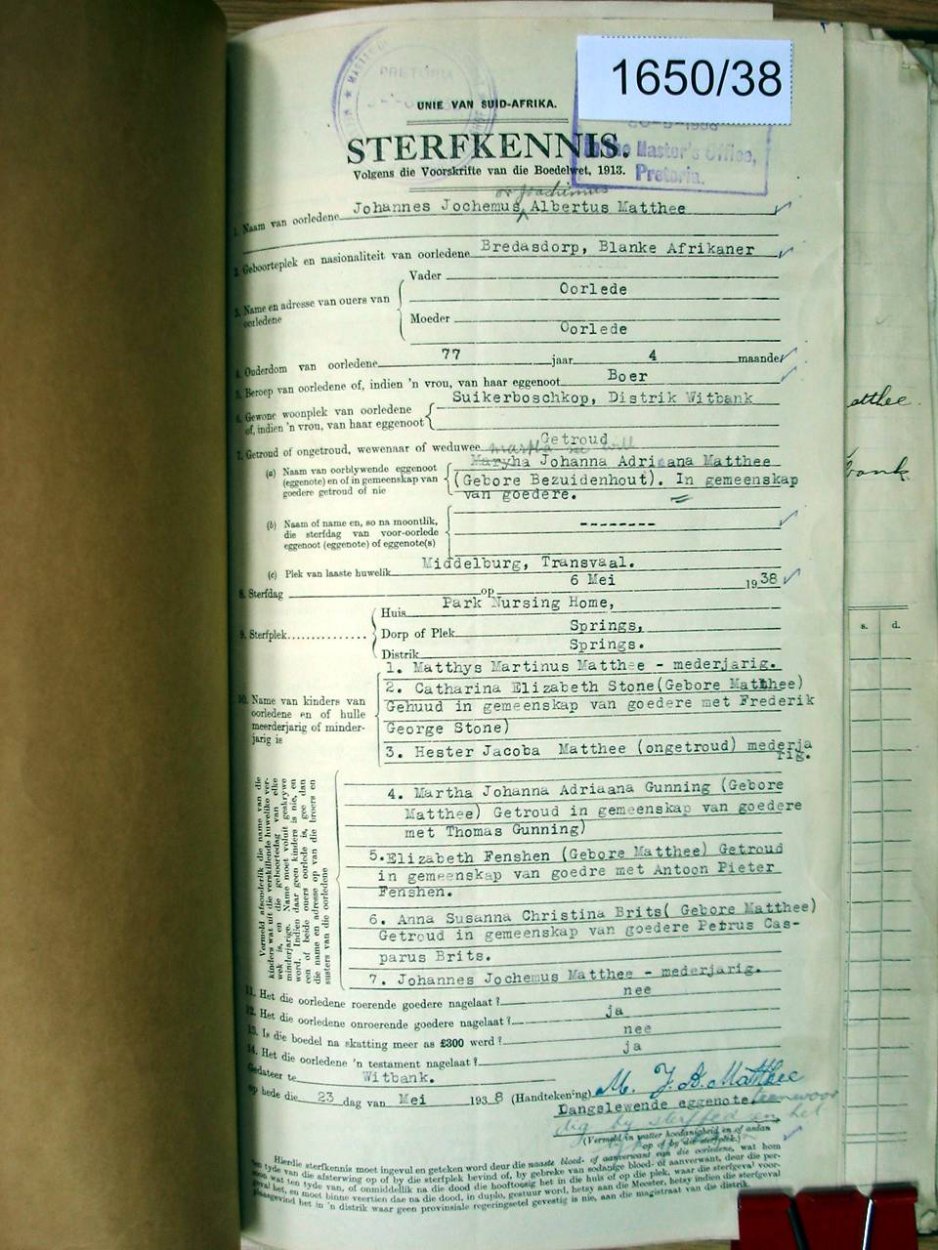 1650/38
PRETORIA
UNIE VAN SUID-AFRIKA.
STERFKENNIS.
to the Master's Office,
Pretoria.
Volgens die Voorskrifte van die Boedelwet, 1913.
or Joachimus
1. Naam van oorledene Johannes Jochemus Albertus Matthee
2. Geboorteplek en nasionaliteit van oorledene Bredasdorp, Blanke Afrikaner
3. Name en adresse van ouers van oorledene
Vader
Oorlede
Moeder
Oorlede
4. Ouderdom van oorledene 77 jaar 4 maande
5. Beroep van oorledene of, indien 'n vrou, van haar eggenoot Boer
6. Gewone woonplek van oorledene of, indien 'n vrou, van haar eggenoot
Suikerboschkop, Distrik Witbank
7. Getroud of ongetroud, wewenaar of weduwee Getroud
martha see will
(a) Naam van oorblywende eggenoot (eggenote) en of in gemeenskap van goedere getroud of nie
Maryha Johanna Adriaana Matthee
(Gebore Bezuidenhout). In gemeenskap
van goedere.
(b) Naam of name en, so na moontlik, die sterfdag van voor-oorlede eggenoot (eggenote) of eggenote(s)
--------
(c) Plek van laaste huwelik Middelburg, Transvaal.
8. Sterfdag op 6 Mei 1938
9. Sterfplek
Huis Park Nursing Home,
Dorp of Plek Springs,
Distrik Springs.
10. Name van kinders van oorledene en of hulle meerderjarig of minderjarig is
1. Matthys Martinus Matthee - mederjarig.
2. Catharina Elizabeth Stone(Gebore Matthee)
Gehuud in gemeenskap van goedere met Frederik
George Stone)
3. Hester Jacoba Matthee (ongetroud) mederja
rig.
Vermeld afsonderlik die name van die
kinders wat uit die verskillende huwelike ver-
wek is, en die geboortedag van elke
minderjarige. Name moet voluit geskrywe
word. Indien daar geen kinders is nie, en
een of beide ouers oorlede is, gee dan
die name en adresse op van die broers en
susters van die oorledene
4. Martha Johanna Adriaana Gunning (Gebore
Matthee) Getroud in gemeenskap van goedere
met Thomas Gunning)
5.Elizabeth Fenshen (Gebore Matthee) Getroud
in gemeenskap van goedre met Antoon Pieter
Fenshen.
6. Anna Susanna Christina Brits( Gebore Matthee)
Getroud in gemeenskap van goedere Petrus Cas-
parus Brits.
7. Johannes Jochemus Matthee - mederjarig.
11. Het die oorledene roerende goedere nagelaat? nee
12. Het die oorledene onroerende goedere nagelaat? ja
13. Is die boedel na skatting meer as £300 werd? nee
14. Het die oorledene 'n testament nagelaat? ja
Gedateer te Witbank.
op hede die 23 dag van Mei 1938 (Handtekening) M. J. A. Matthee
Langslewende eggenote. teenwoor
dig by sterfbed en het
(Vermeld in watter hoedanigheid en of anlan
op of by die sterfplek.)
Hierdie sterfkennis moet ingeval en geteken word deur die naaste bloed- of aanverwant van die oorledene, wat hom
ten tyde van die afsterwing op of by die sterfplek bevind of, by gebreke van sodanige bloed- of aanverwant, deur die per-
soon wat ten tyde van, of onmiddellik na die dood die hooftoosig het in die huis of op die plek, waar die sterfgeval voor-
geval het, en moet binne veertien dae na die dood, in duplo, gestuur word, hetsy aan die Meester, hetsy indien die sterfgeval
plaasgevind het in 'n distrik waar geen provinsiale regeringsetel gevestig is nie, aan die magistraat van die distrik.
atthee.
bank
s. d.